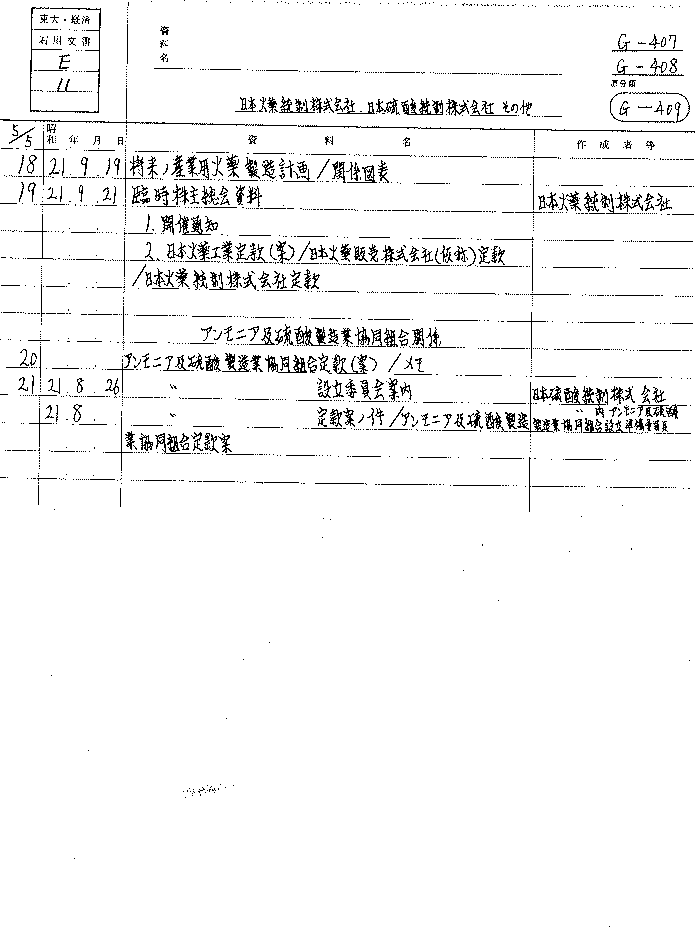 東大・経済
石川文書
E
11
資料名
G-407
G-408
原分類
G-409
日本火薬統制株式会社、日本硫酸統制株式会社 その他
5/5 昭和 年 月 日 資料名 作成者等
18 21 9 19 将来ノ産業用火薬製造計画/関係図表
19 21 9 21 臨時株主総会資料 日本火薬統制株式会社
1. 開催通知
2. 日本火薬工業定款(案)/日本火薬販売株式会社(仮称)定款
/日本火薬統制株式会社定款
アンモニア及硫酸製造業協同組合関係
20 アンモニア及硫酸製造業協同組合定款(案)/メモ
21 21 8 26 〃 設立委員会案内 日本硫酸統制株式会社
21 8 〃 定款案ノ件/アンモニア及硫酸製造 〃 内 アンモニア及硫酸
業協同組合定款案 製造業協同組合設立準備委員長